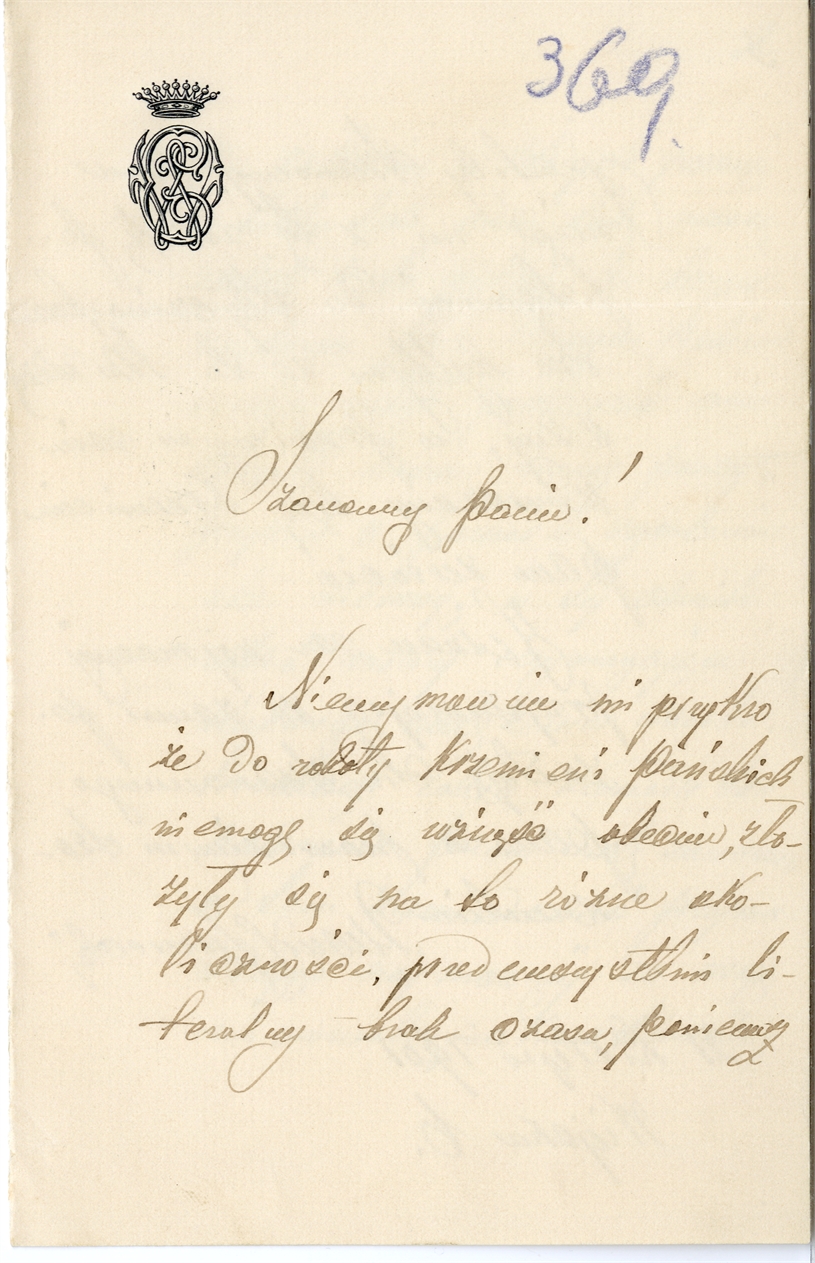 369.
Szanowny Panie!
Niewymownie mi przykro
że do roboty Krzemieni Pańskich
niemogę się wziąść obecnie, zło-
żyły się na to różne oko-
liczności, przedewszystkim li-
teralny brak czasu, ponieważ